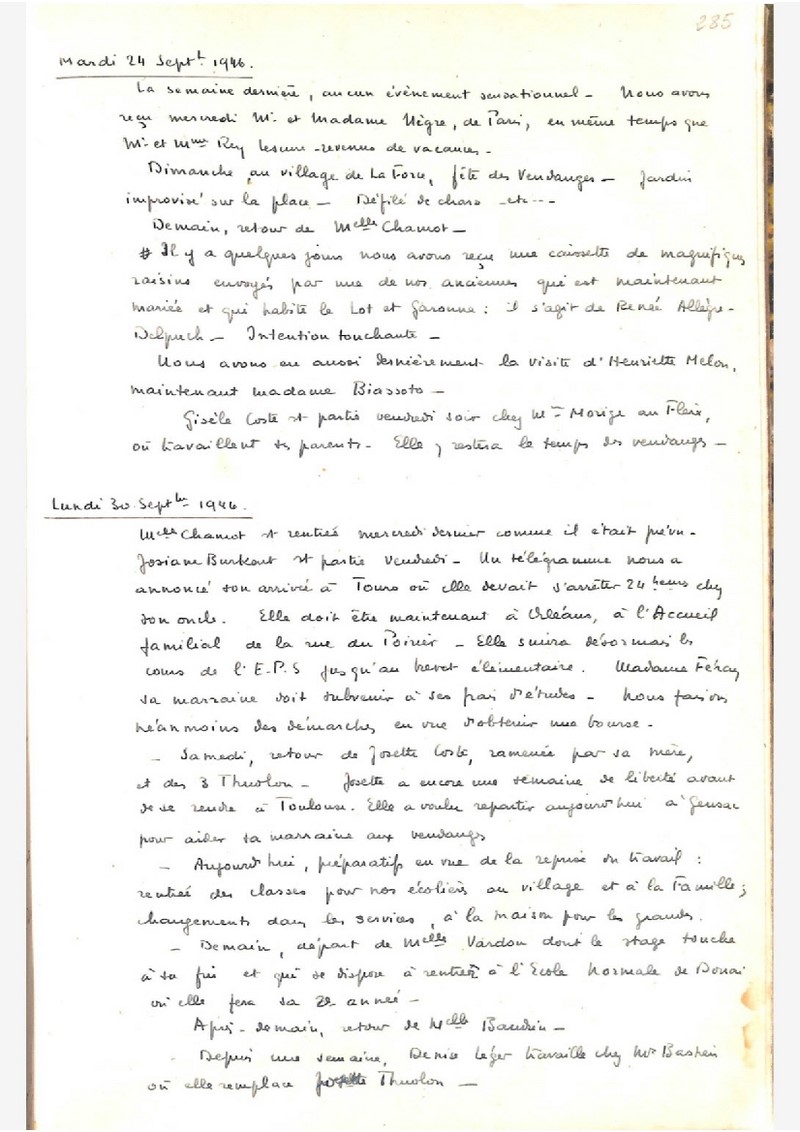 285
Mardi 24 Septt 1946.
La semaine dernière, aucun évènement sensationnel - Nous avons
reçu mercredi Mr et Madame Nègre, de Paris, en même temps que
Mr et Mme Rey Lescure - revenus de vacances -
Dimanche au village de La Force, fête des Vendanges - Jardin
improvisé sur la place - Défilé de chars - etc ---
Demain, retour de Melle Chamot -
# Il y a quelques jours nous avons reçu une caissette de magnifiques
raisins envoyés par une de nos anciennes qui est maintenant
mariée et qui habite le Lot et Garonne : il s'agit de Renée Allègre-
Delpuech - Intention touchante -
Nous avons eu aussi dernièrement la visite d'Henriette Melon,
maintenant madame Biassoto -
Gisèle Coste est partie vendredi soir chez Mr Morize au Fleix,
où travaillent ses parents - Elle y restera le temps des vendanges -
Lundi 30 Septbre 1946.
Melle Chamot est rentrée mercredi dernier comme il était prévu -
Josiane est partie vendredi - Un télégramme nous a
annoncé son arrivée à Tours où elle devait s'arrêter 24 heures chez
son oncle. Elle doit être maintenant à Orléans, à l'Accueil
familial de la rue du Poirier - Elle suivra désormais les
cours de l'E.P.S jusqu'au brevet élémentaire. Madame
sa marraine doit subvenir à ses frais d'études - Nous faisons
néanmoins des démarches en vue d'obtenir une bourse -
- Samedi, retour de Josette Coste, ramenée par sa mère,
et des 3 Thuolon - Josette a encore une semaine de liberté avant
de se rendre à Toulouse. Elle a voulu repartir aujourd'hui à Gensac
pour aider sa marraine aux vendanges
- Aujourd'hui, préparatifs en vue de la reprise du travail :
rentrée des classes pour nos écoliers au village et à la Famille ;
changements dans les services, à la maison pour les grandes.
- Demain, départ de Melle Vardon dont le stage touche
à sa fin et qui se dispose à rentrer à l'Ecole Normale de Douai
où elle fera sa 2e année -
Après-demain, retour de Melle Baudrin -
- Depuis une semaine, Denise Léger travaille chez Mr Bastein
où elle remplace Josette Thuolon -